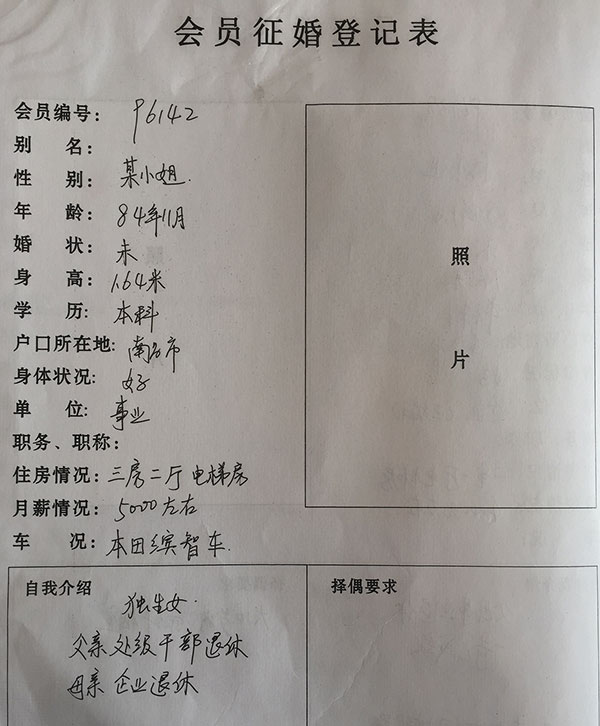 会员征婚登记表
会员编号：96142
别 名：
性 别：某小姐.
年 龄：84年11月
婚 状：未
身 高：1.64米
学 历：本科
户口所在地：南昌市
身体状况：好
单 位：事业
职务、职称：
住房情况：三房二厅电梯房
月薪情况：5000左右
车 况：本田缤智车.
照
片
自我介绍
独生女.
父亲处级干部退休
母亲 企业退休
择偶要求